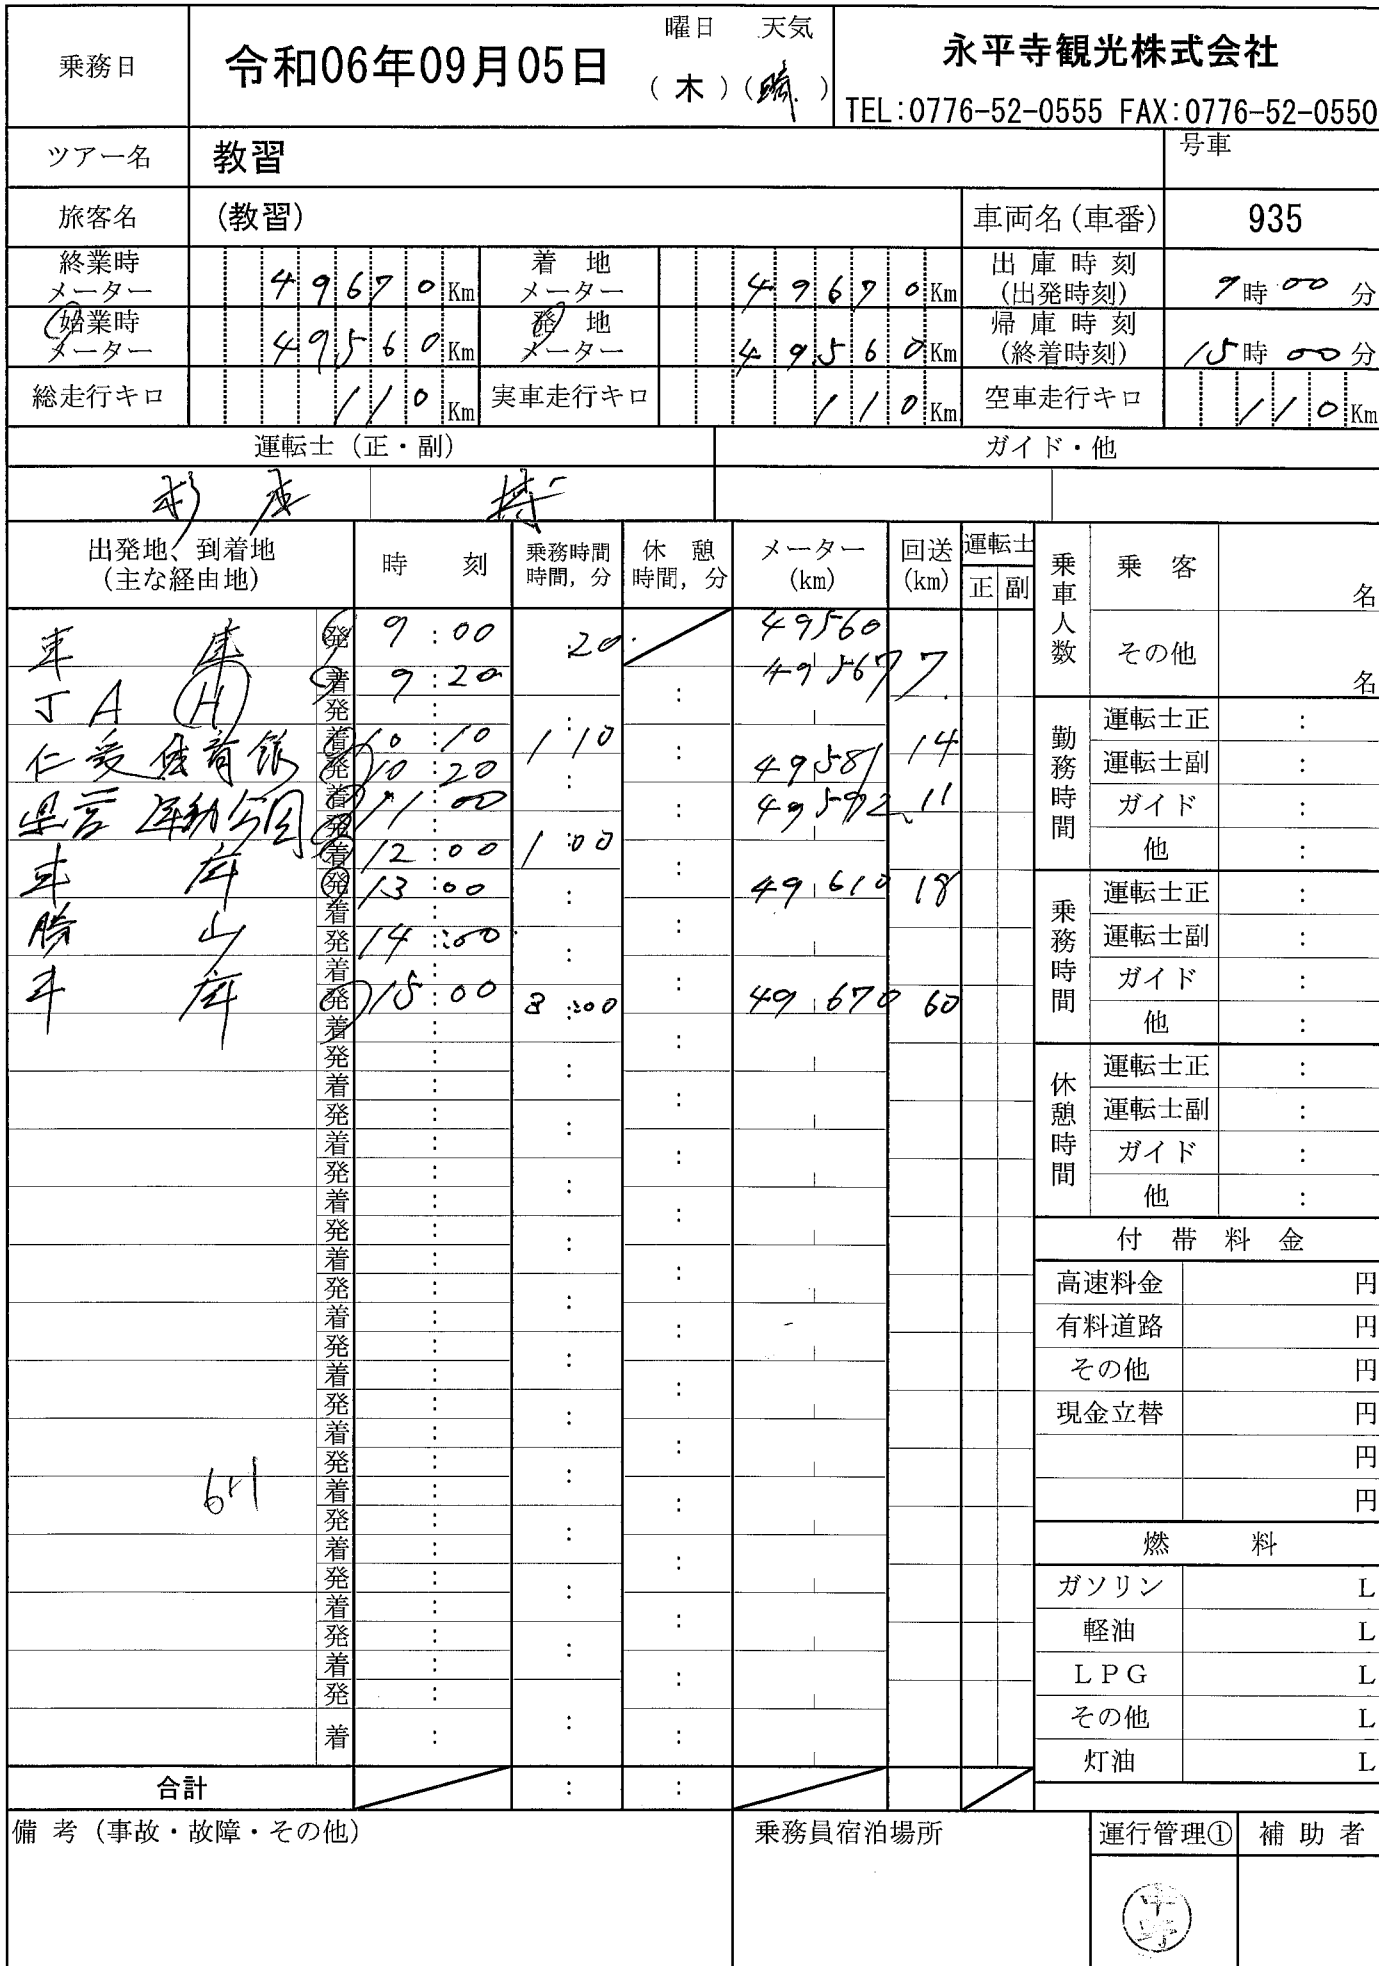 乗務日 令和06年09月05日 曜日 天気 (木)(晴) 永平寺観光株式会社
TEL:0776-52-0555 FAX:0776-52-0550
ツアー名 教習 号車
旅客名 (教習) 車両名(車番) 935
終業時メーター 49670Km 着地メーター 49670Km 出庫時刻(出発時刻) 9時00分
始業時メーター 49560Km 発地メーター 49560Km 帰庫時刻(終着時刻) 15時00分
総走行キロ 110Km 実車走行キロ 110Km 空車走行キロ 110Km
運転士(正・副) ガイド・他
出発地、到着地(主な経由地) 時刻 乗務時間 時間,分 休憩 時間,分 メーター(km) 回送(km) 運転士 正 副
車庫 発 9:00 :20 49560
着 9:20 49567 7
JA H 発 :
着 10:10 1:10 14
仁愛体育館 発 10:20 49581
着 11:00 49592 11
県営運動公園 発
着 12:00 1:00
車庫 発 13:00 49610 18
着
勝山 発 14:00
着
車庫 発 15:00 3:00 49670 60
着
発 :
着
発 :
着
発 :
着
発 :
着
発 :
着
発 :
着
発 :
着
発 :
着
6H 発 :
着
発 :
着
発 :
着
発 :
着
発 :
着 :
合計 : :
乗車人数 乗客 名
その他 名
勤務時間 運転士正 :
運転士副 :
ガイド :
他 :
乗務時間 運転士正 :
運転士副 :
ガイド :
他 :
休憩時間 運転士正 :
運転士副 :
ガイド :
他 :
付帯料金
高速料金 円
有料道路 円
その他 円
現金立替 円
円
円
燃料
ガソリン L
軽油 L
LPG L
その他 L
灯油 L
備考(事故・故障・その他) 乗務員宿泊場所 運行管理① 補助者
中野